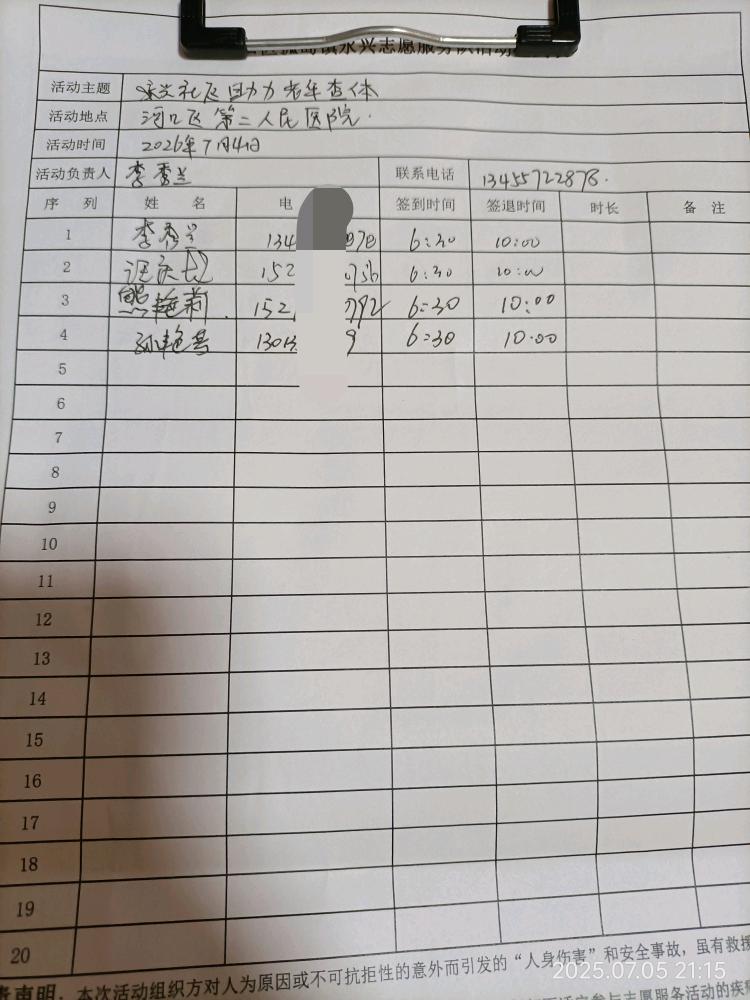 永兴志愿服务队活动
活动主题 永兴社区助力老年查体
活动地点 河口区第二人民医院.
活动时间 2026年7月4日
活动负责人 李秀兰 联系电话 13455722878.
序 列 姓 名 电 签到时间 签退时间 时长 备 注
1 李秀兰 134 6:30 10:00
2 152 6:30 10:00
3 熊艳莉 152 792 6:30 10:00
4 孙艳 130 9 6:30 10:00
5
6
7
8
9
10
11
12
13
14
15
16
17
18
19
20
责声明,本次活动组织方对人为原因或不可抗拒性的意外而引发的“人身伤害”和安全事故,虽有救援
2025.07.05 21:15
参与志愿服务活动的疾